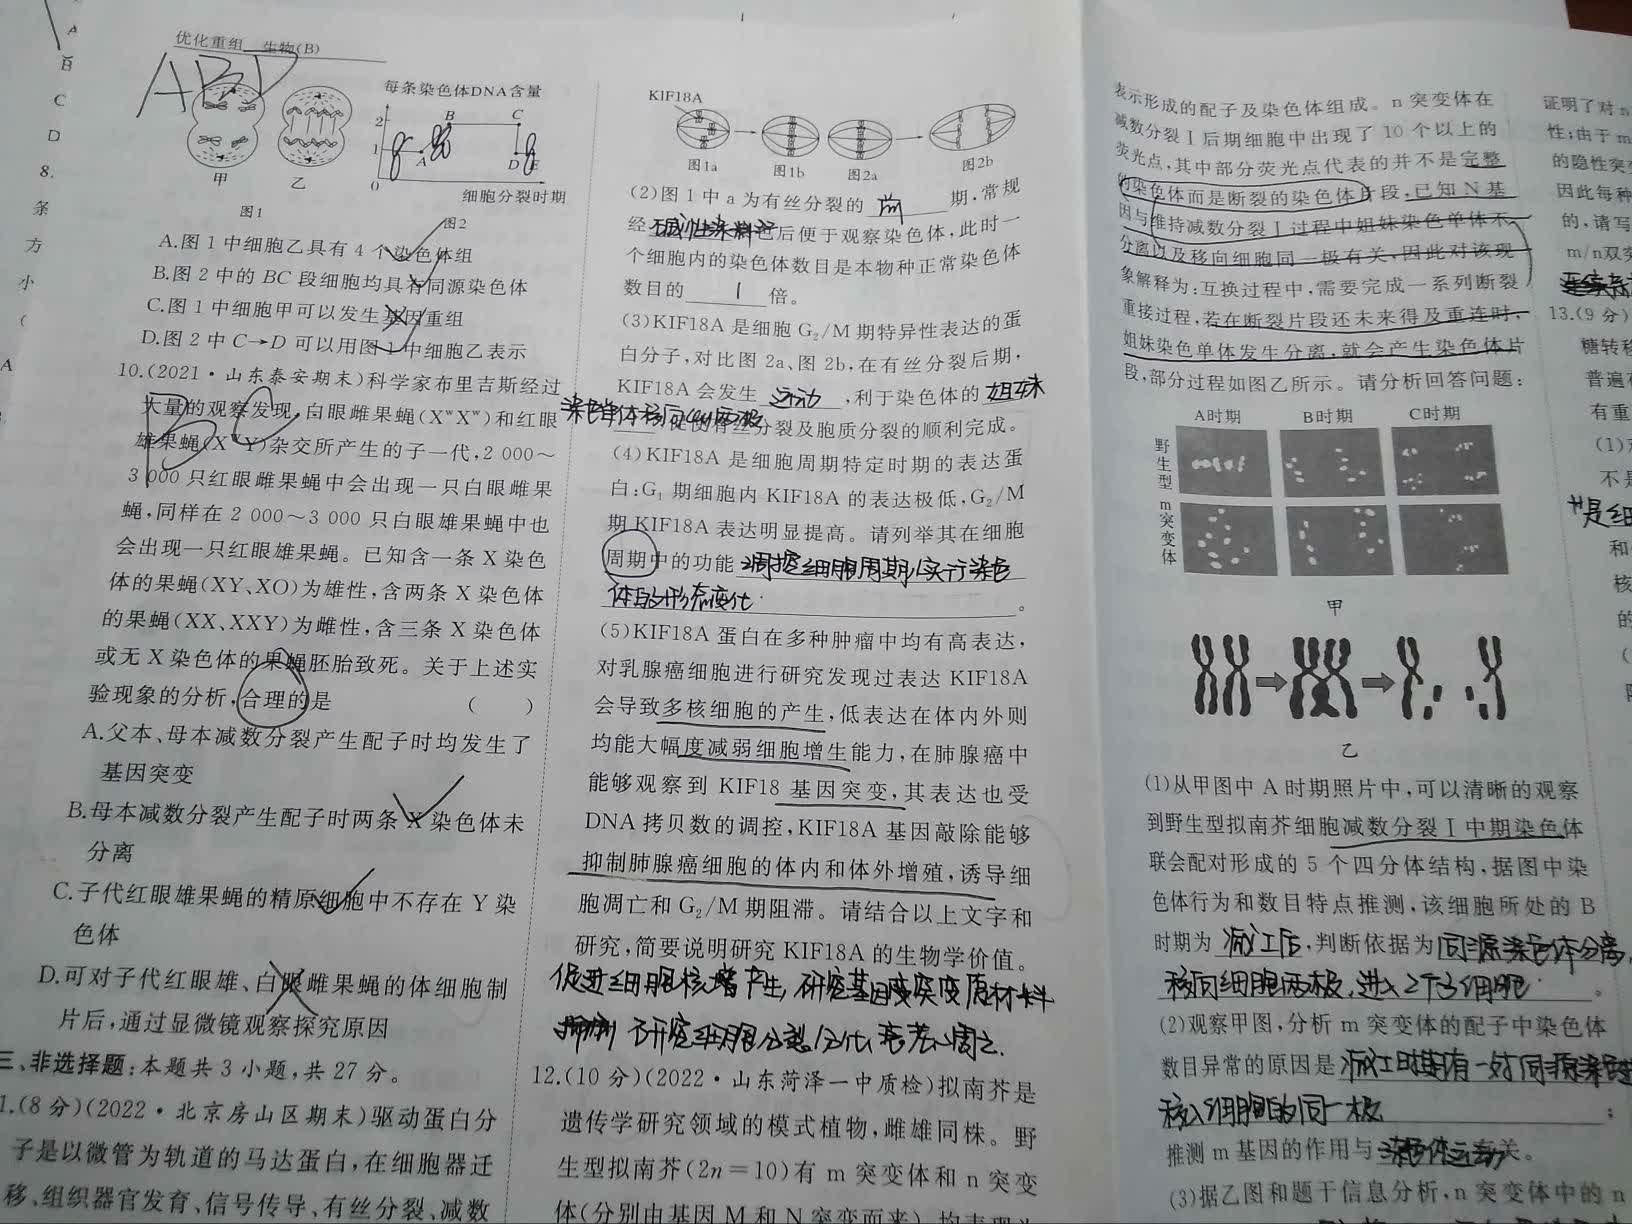 优化重组 生物(B)
ABD
A
B
C
D
8.
条
方
小
(
A
每条染色体DNA含量
2
1
0
B
C
A
D
E
细胞分裂时期
甲
乙
图1
图2
A.图1中细胞乙具有4个染色体组
B.图2中的BC段细胞均具有同源染色体
C.图1中细胞甲可以发生基因重组
D.图2中C→D可以用图1中细胞乙表示
10.(2021·山东泰安期末)科学家布里吉斯经过
大量的观察发现,白眼雌果蝇(XʷXʷ)和红眼
雄果蝇(XᵂY)杂交所产生的子一代,2 000～
3 000只红眼雌果蝇中会出现一只白眼雌果
蝇,同样在2 000～3 000只白眼雄果蝇中也
会出现一只红眼雄果蝇。已知含一条X染色
体的果蝇(XY、XO)为雄性,含两条X染色体
的果蝇(XX、XXY)为雌性,含三条X染色体
或无X染色体的果蝇胚胎致死。关于上述实
验现象的分析,合理的是 ( )
BC
A.父本、母本减数分裂产生配子时均发生了
基因突变
B.母本减数分裂产生配子时两条X染色体未
分离
C.子代红眼雄果蝇的精原细胞中不存在Y染
色体
D.可对子代红眼雄、白眼雌果蝇的体细胞制
片后,通过显微镜观察探究原因
三、非选择题:本题共3小题,共27分。
1.(8分)(2022·北京房山区期末)驱动蛋白分
子是以微管为轨道的马达蛋白,在细胞器迁
移、组织器官发育、信号传导、有丝分裂、减数
KIF18A
图1a
图1b
图2a
图2b
(2)图1中a为有丝分裂的 前 期,常规
经碱性染料染色后便于观察染色体,此时一
个细胞内的染色体数目是本物种正常染色体
数目的 1 倍。
(3)KIF18A是细胞G₂/M期特异性表达的蛋
白分子,对比图2a、图2b,在有丝分裂后期,
KIF18A会发生 运动 ,利于染色体的 姐妹
染色单体移向细胞两极
促使有丝分裂及胞质分裂的顺利完成。
(4)KIF18A是细胞周期特定时期的表达蛋
白:G₁期细胞内KIF18A的表达极低,G₂/M
期KIF18A表达明显提高。请列举其在细胞
周期中的功能 调控细胞周期,实行染色
体的形态变化 。
(5)KIF18A蛋白在多种肿瘤中均有高表达,
对乳腺癌细胞进行研究发现过表达KIF18A
会导致多核细胞的产生,低表达在体内外则
均能大幅度减弱细胞增生能力,在肺腺癌中
能够观察到KIF18基因突变,其表达也受
DNA拷贝数的调控,KIF18A基因敲除能够
抑制肺腺癌细胞的体内和体外增殖,诱导细
胞凋亡和G₂/M期阻滞。请结合以上文字和
研究,简要说明研究KIF18A的生物学价值。
促进细胞核增产生,研究基因突变原材料
研究细胞分裂,分化,衰老,凋亡.
12.(10分)(2022·山东菏泽一中质检)拟南芥是
遗传学研究领域的模式植物,雌雄同株。野
生型拟南芥(2n=10)有m突变体和n突变
体(分别由基因M和N突变而来),均表现为
表示形成的配子及染色体组成。n突变体在
减数分裂Ⅰ后期细胞中出现了10个以上的
荧光点,其中部分荧光点代表的并不是完整
的染色体而是断裂的染色体片段,已知N基
因与维持减数分裂Ⅰ过程中姐妹染色单体不
分离以及移向细胞同一极有关,因此对该现
象解释为:互换过程中,需要完成一系列断裂
重接过程,若在断裂片段还未来得及重连时,
姐妹染色单体发生分离,就会产生染色体片
段,部分过程如图乙所示。请分析回答问题:
A时期
B时期
C时期
野生型
m突变体
甲
乙
(1)从甲图中A时期照片中,可以清晰的观察
到野生型拟南芥细胞减数分裂Ⅰ中期染色体
联会配对形成的5个四分体结构,据图中染
色体行为和数目特点推测,该细胞所处的B
时期为 减Ⅰ后 ,判断依据为 同源染色体分离,
移向细胞两极,进入2个子细胞 。
(2)观察甲图,分析m突变体的配子中染色体
数目异常的原因是 减Ⅰ时期有一对同源染色
移入细胞的同一极 ;
推测m基因的作用与 染色体运动 有关。
(3)据乙图和题干信息分析,n突变体中的n
证明了对n
性;由于m
的隐性突
因此每种
的,请写
m/n双突
13.(9分)
糖转移
普遍
有重
(1)
不是
是细
和
核
的